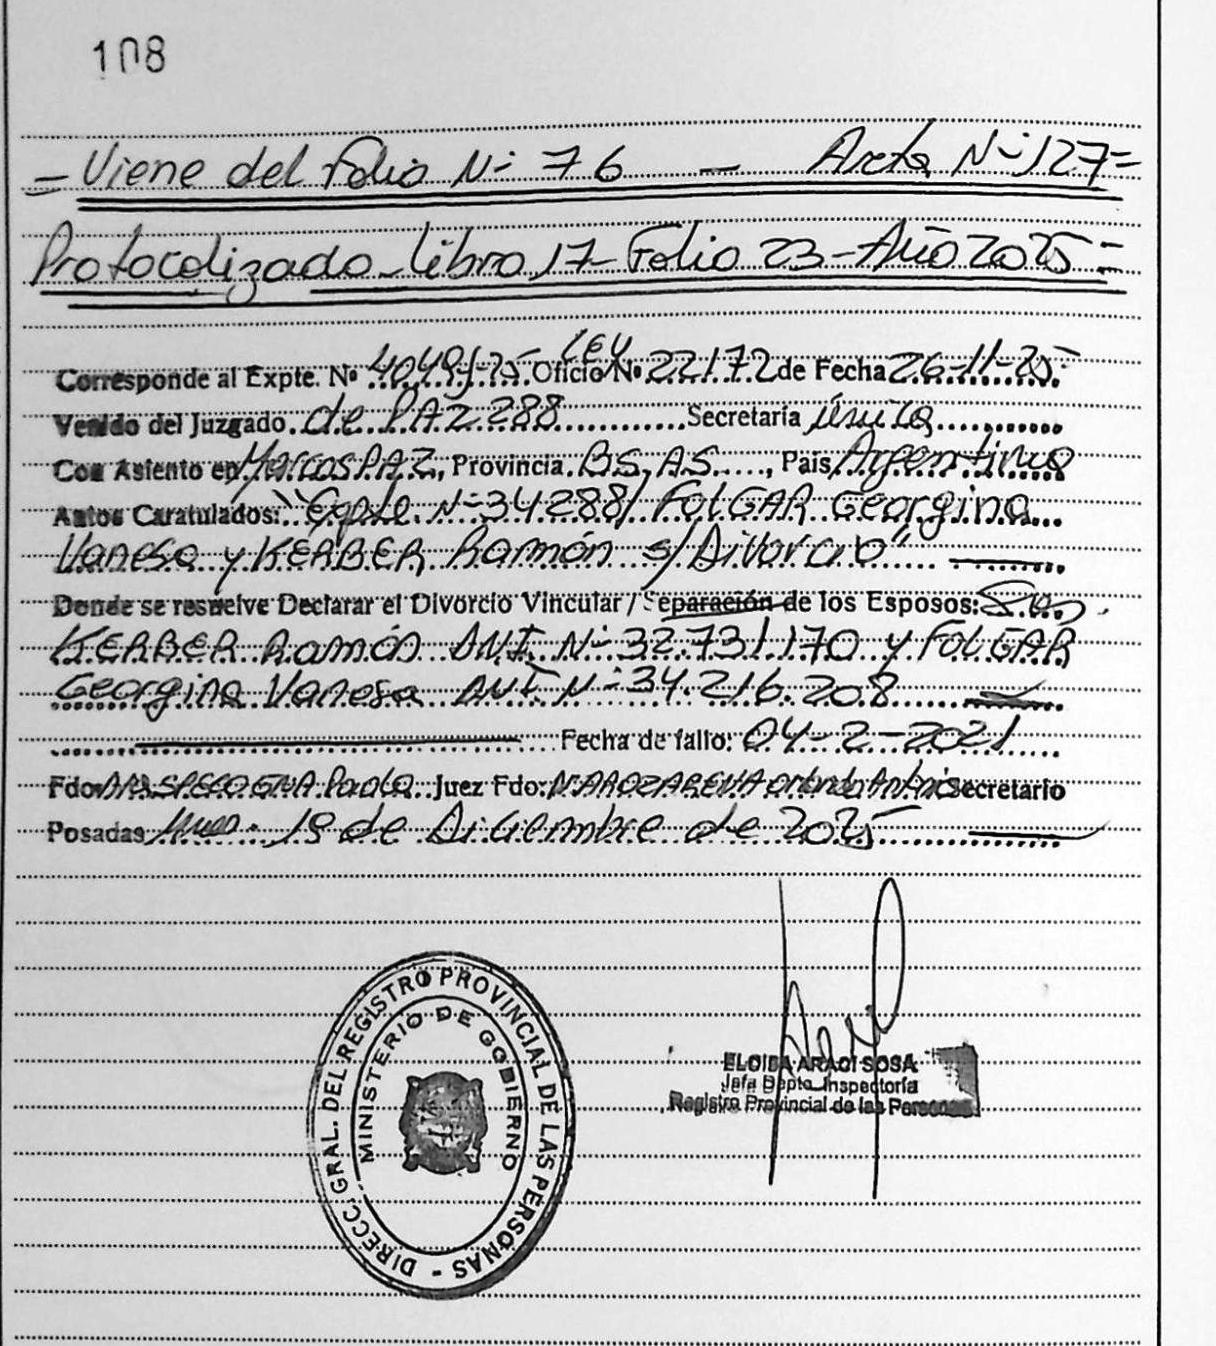 108
- Viene del Folio Nº 76 — Acta Nº 127 =
Protocolizado - Libro 17 - Folio 23 - Año 2025 =
Corresponde al Expte. Nº 4049/-25 Oficio Ley Nº 22.172 de Fecha 26-11-25
Venido del Juzgado de PAZ 288 Secretaría única
Con Asiento en Marcos PAZ, Provincia BS. AS., País Argentina
Autos Caratulados: "Expte. Nº 34.288/ FOLGAR Georgina
Vanesa y KERBER Ramón s/Divorcio"
Donde se resuelve Declarar el Divorcio Vincular / Separación de los Esposos: Sres.
KERBER Ramón D.N.I. Nº 32.731.170 y FOLGAR
Georgina Vanesa D.N.I. Nº 34.216.208
Fecha de fallo: 04-2-2021
Fdo: Juez Fdo: Secretario
Posadas Mnes. 19 de Diciembre de 2025
DIRECC. GRAL. DEL REGISTRO PROVINCIAL DE LAS PERSONAS -
MINISTERIO DE GOBIERNO
ELOISA ARACI SOSA
Jefa Depto. Inspectoría
Registro Provincial de las Personas